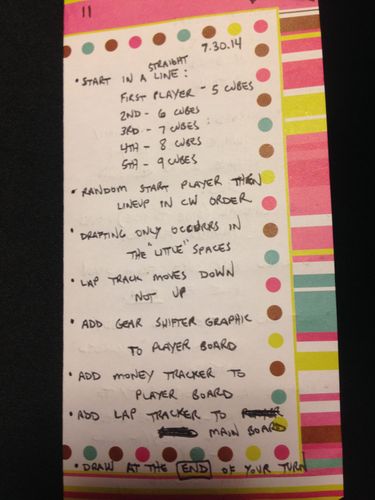 11
7.30.14
STRAIGHT
• START IN A LINE:
FIRST PLAYER - 5 CUBES
2ND - 6 CUBES
3RD - 7 CUBES
4TH - 8 CUBES
5TH - 9 CUBES
• RANDOM START PLAYER THEN
LINEUP IN CW ORDER
• DRAFTING ONLY OCCURRS IN
THE "LITTLE" SPACES
• LAP TRACK MOVES DOWN
NOT UP
• ADD GEAR SHIFTER GRAPHIC
TO PLAYER BOARD
• ADD MONEY TRACKER TO
PLAYER BOARD
• ADD LAP TRACKER TO
MAIN BOARD
• DRAW AT THE END OF YOUR TURN